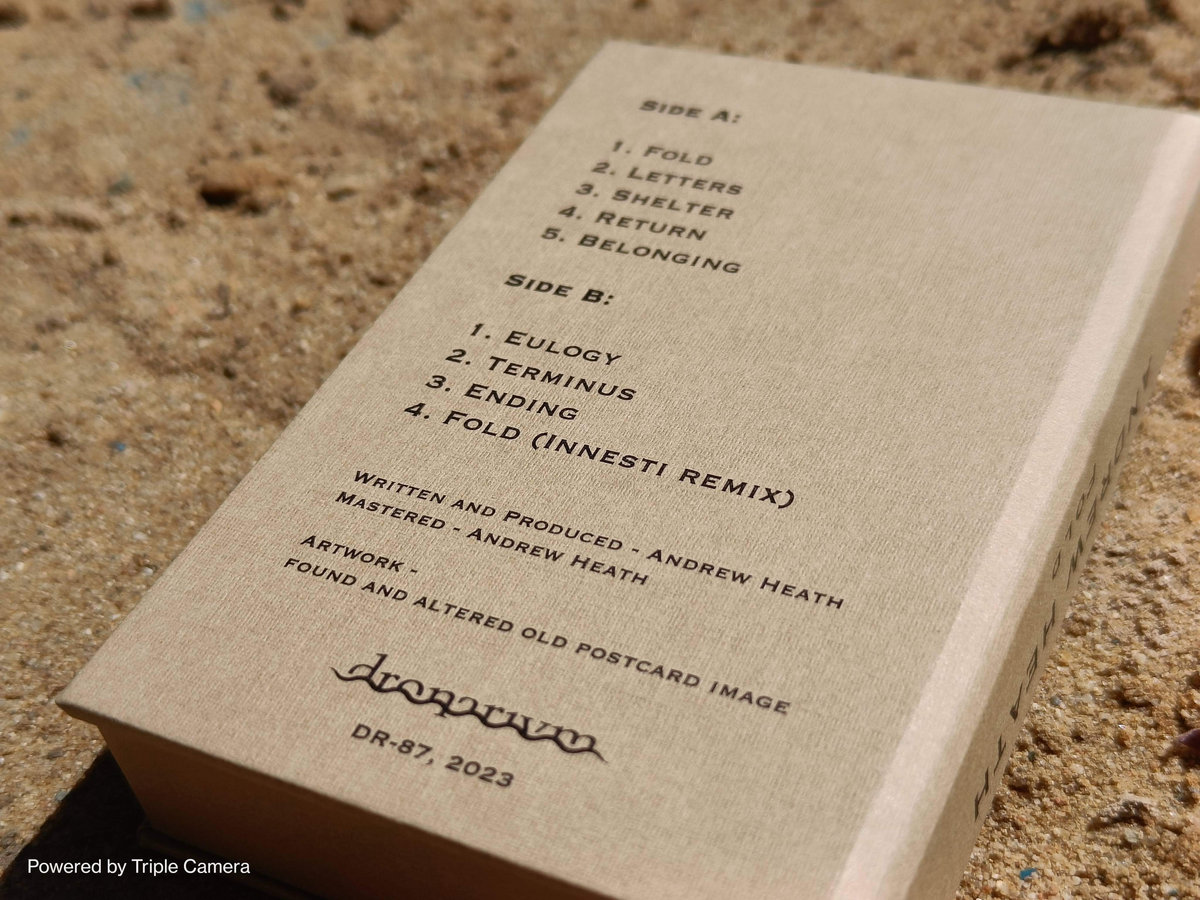 SIDE A:
1. FOLD
2. LETTERS
3. SHELTER
4. RETURN
5. BELONGING
SIDE B:
1. EULOGY
2. TERMINUS
3. ENDING
4. FOLD (INNESTI REMIX)
WRITTEN AND PRODUCED - ANDREW HEATH
MASTERED - ANDREW HEATH
ARTWORK -
FOUND AND ALTERED OLD POSTCARD IMAGE
dronarivm
DR-87, 2023
HEATH
Powered by Triple Camera